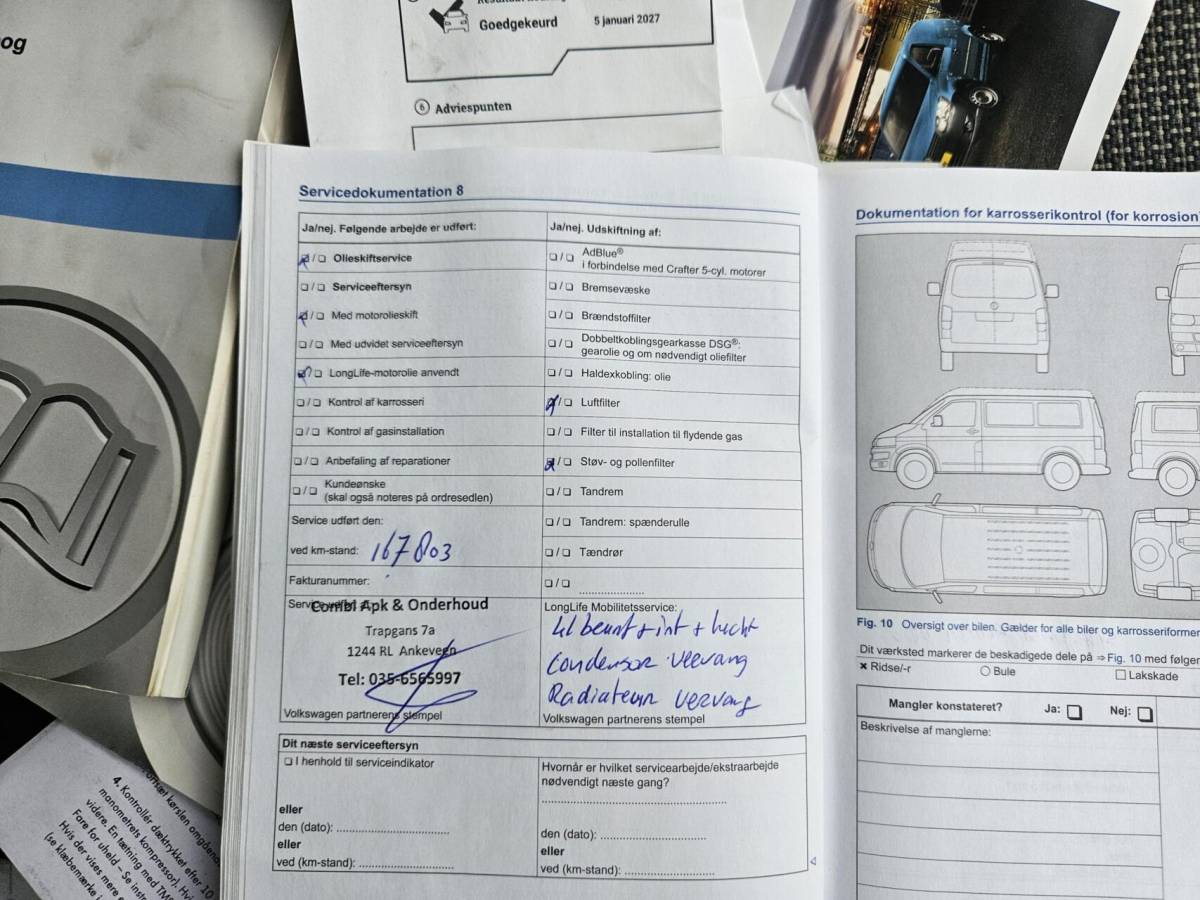 og
Goedgekeurd 5 januari 2027
6 Adviespunten
Servicedokumentation 8
Ja/nej. Følgende arbejde er udført:
Olieskiftservice
Serviceeftersyn
Med motorolieskift
Med udvidet serviceeftersyn
LongLife-motorolie anvendt
Kontrol af karrosseri
Kontrol af gasinstallation
Anbefaling af reparationer
Kundeønske
(skal også noteres på ordresedlen)
Service udført den:
ved km-stand: 167803
Fakturanummer:
Combi Apk & Onderhoud
Trapgans 7a
1244 RL Ankeveen
Tel: 035-6565997
Volkswagen partnerens stempel
Ja/nej. Udskiftning af:
AdBlue®
i forbindelse med Crafter 5-cyl. motorer
Bremsevæske
Brændstoffilter
Dobbeltkoblingsgearkasse DSG®:
gearolie og om nødvendigt oliefilter
Haldexkobling: olie
Luftfilter
Filter til installation til flydende gas
Støv- og pollenfilter
Tandrem
Tandrem: spænderulle
Tændrør
LongLife Mobilitetsservice:
+ int + lucht
Condensor veevang
Radiateur vervang
Volkswagen partnerens stempel
Dit næste serviceeftersyn
I henhold til serviceindikator
eller
den (dato):
eller
ved (km-stand):
Hvornår er hvilket servicearbejde/ekstraarbejde
nødvendigt næste gang?
den (dato):
eller
ved (km-stand):
Dokumentation for karrosserikontrol (for korrosion)
Fig. 10 Oversigt over bilen. Gælder for alle biler og karrosseriformer
Dit værksted markerer de beskadigede dele på ⇒Fig. 10 med følgen
× Ridse/-r Bule Lakskade
Mangler konstateret? Ja: Nej:
Beskrivelse af manglerne:
4. Kontrollér dæktrykket efter 10
manometrets kompressor). Hvi
videre. En tætning med TM
Fare for uheld – Se inst
Hvis der vises mere
(se klæbemærke i